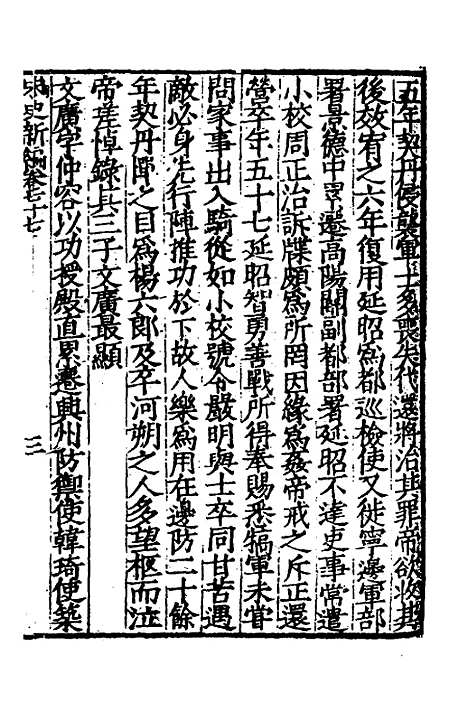 五年契丹侵𢷬軍士多喪失代還將治其罪帝欲收其
後效宥之六年復用延昭為都巡檢使又徙寧邊軍部
署景德中累遷高陽關副都部署延昭不達吏事常遣
小校周正治訴牒頗為所罔因緣為姦帝戒之斥正還
營卒年五十七延昭智勇善戰所得奉賜悉犒軍未嘗
問家事出入騎從如小校號令嚴明與士卒同甘苦遇
敵必身先行陣推功於下故人樂為用在邊防二十餘
年契丹聞之目為楊六郎及卒河朔之人多望柩而泣
帝嗟悼錄其三子文廣最顯
文廣字仲容以功授殿直累遷興州防禦使韓琦使築
宋史新編卷七十七
三